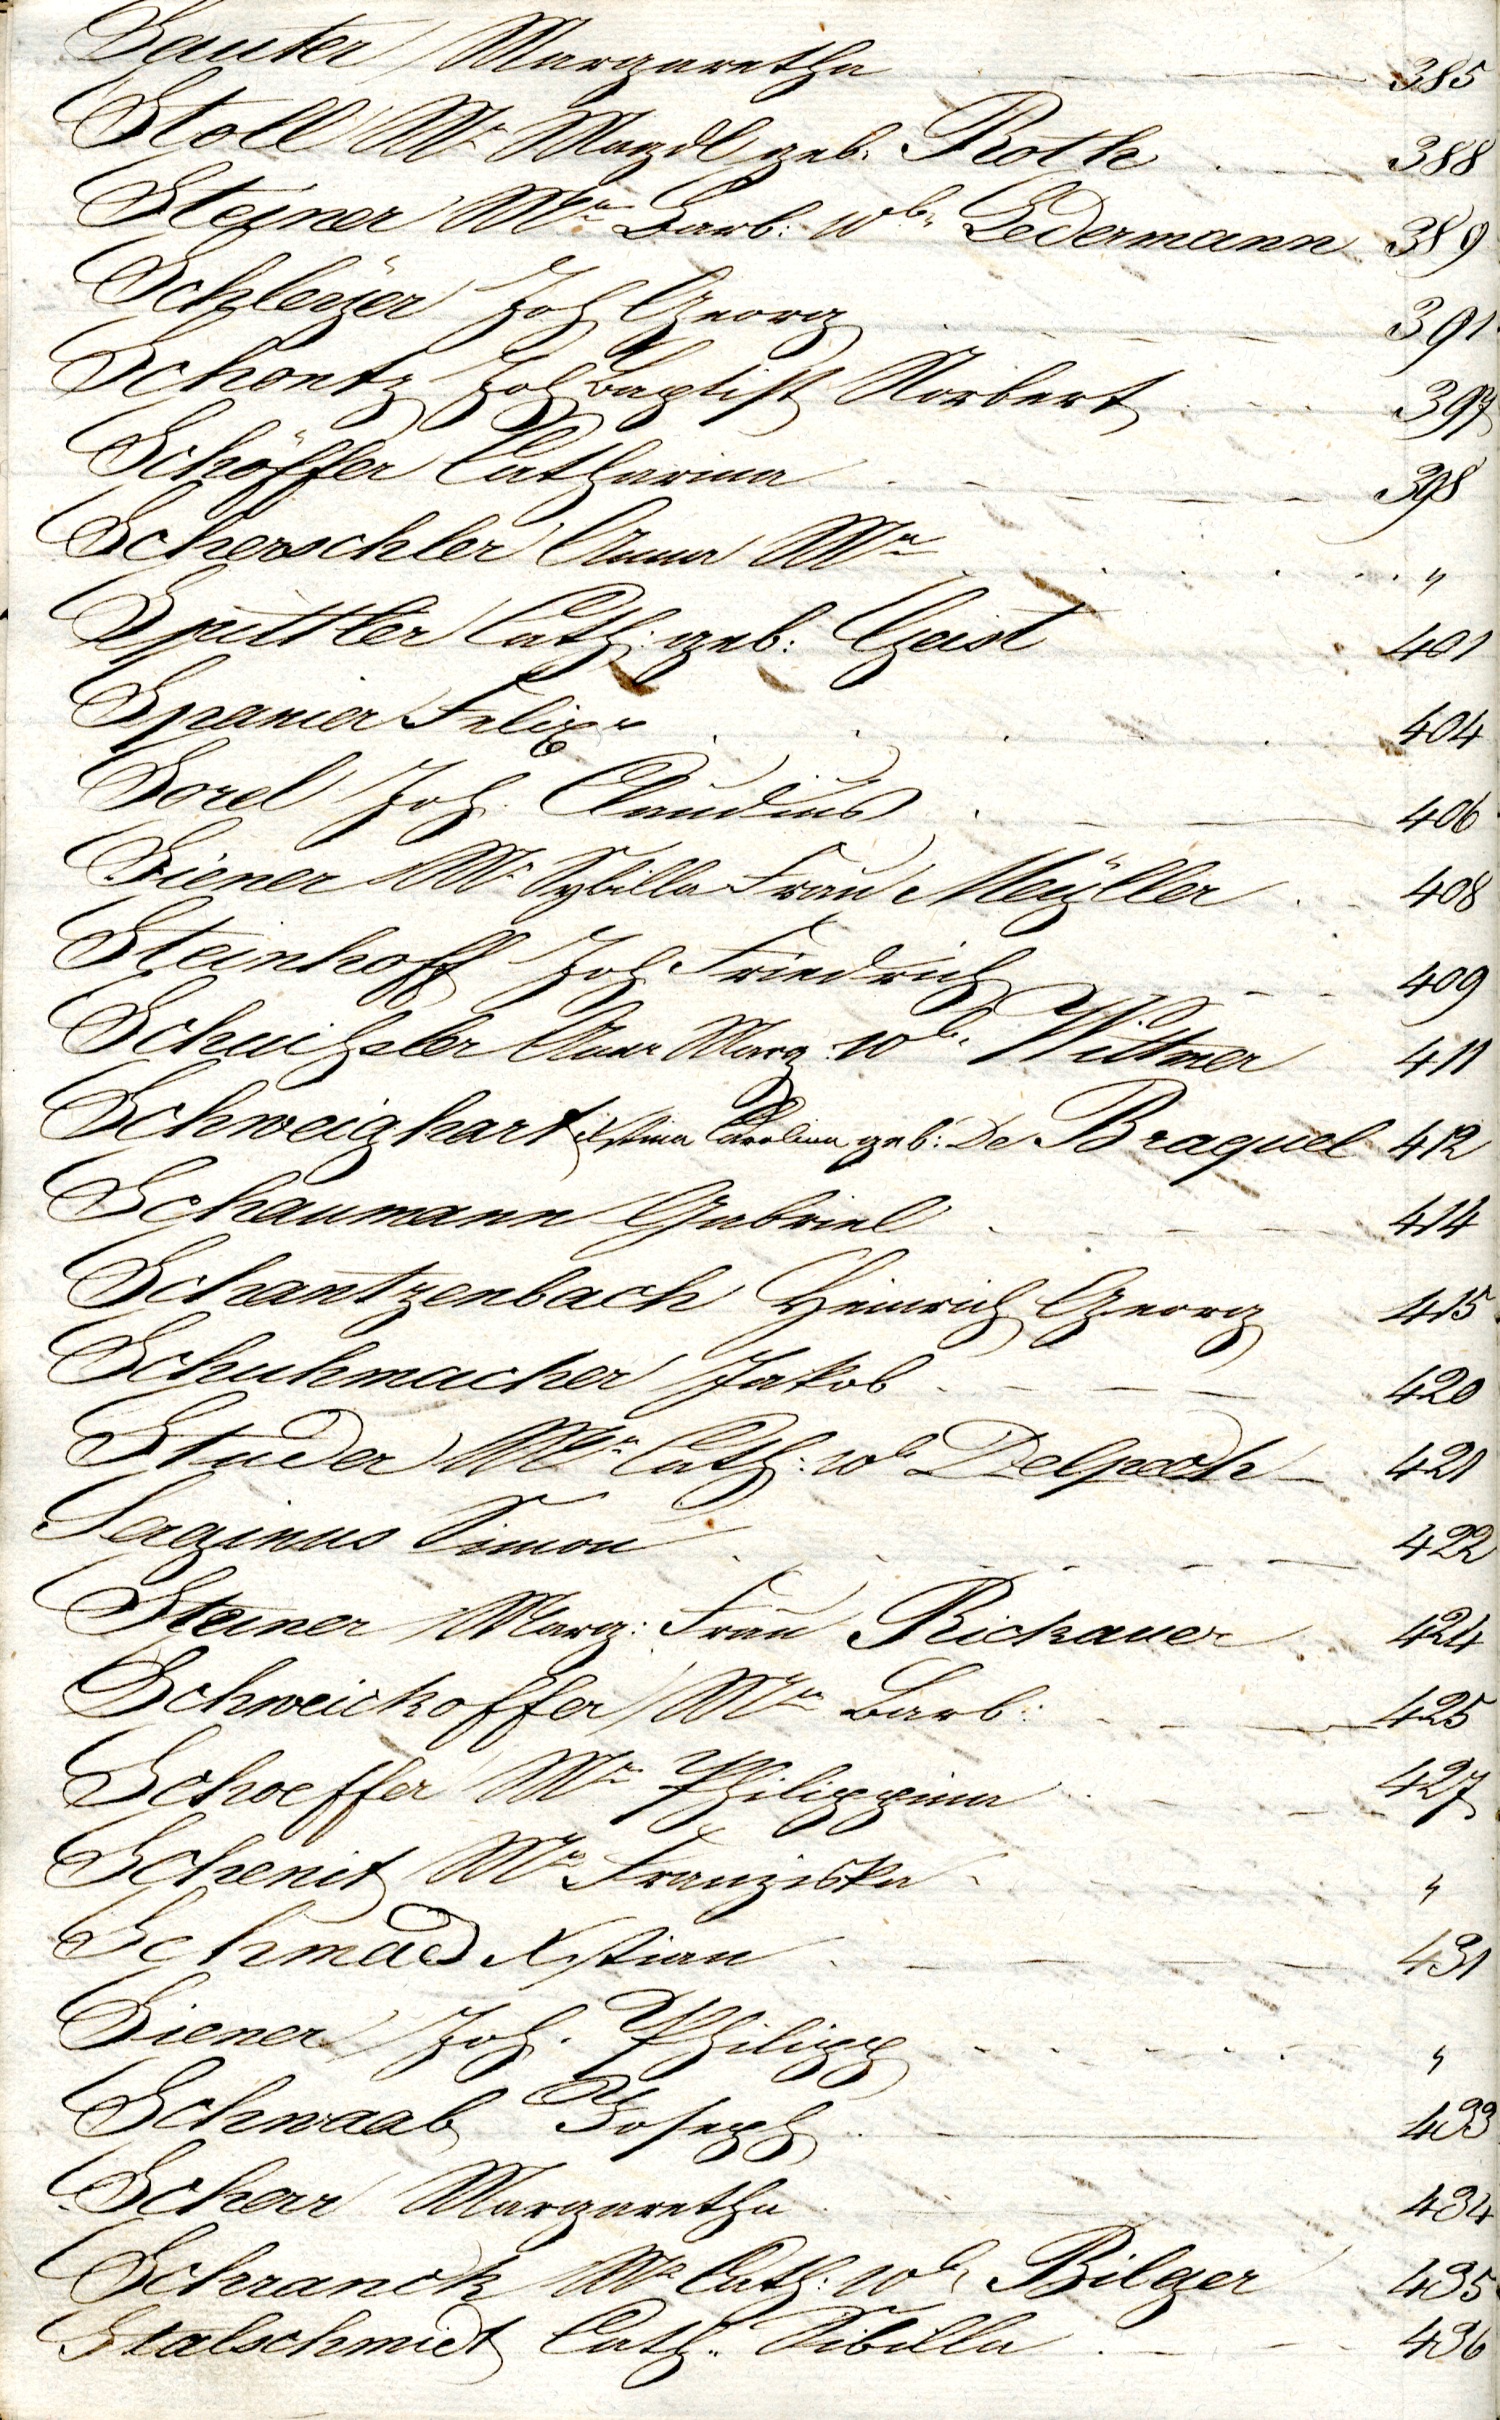 Sauter Margaretha 385
Stoll Mᵃ Magdl geb. Roth 388
Steiner Mᵃ Barb: wb. Ledermann 389
Schleÿer Joh Georg 391
Schontz Joh Baptist Norbert 397
Schöffer Catharina 398
Scherschler Anna Mᵃ "
Spittler Cath: geb: Geist 401
Spanier Felix 404
Sorel Joh. Claudius 406
Siener Mᵃ Sybilla Frau Meÿller 408
Steinhoff Joh Friedrich 409
Anna Marg: wb. Wittmer 411
Schweighart Xstina Carolina geb: De Braquel 412
Schaumann Gabriel 414
Schantzenbach Heinrich Georg 415
Schuhmacher Jakob 420
Studer Mᵃ Cath: wb Delpech 421
Serginus Simon 422
Steiner Marg: Frau Rickauer 424
Schweickoffer Mᵃ Barb: 425
Schoeffer Mᵃ Philippina 427
Schenit Mᵃ Franziska "
Schmad Xstian 431
Siener Joh. Philipp "
Schwaab Joseph 433
Scherr Margaretha 434
Schranck Mᵃ Cath: wb. Bilger 435
Stalschmidt Cath. Sibilla 436